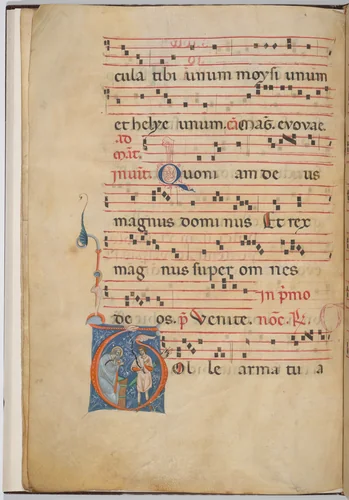 cula tibi unum moysi unum
et helye unum. ad mag̃. evovae.
ad
mat̃.
invit̃. Quoni am de us
magnus dominus Et rex
mag nus super om nes
in pͥmo
de os. p̃ Venite. noc̃. R̃.
Ob le arma tu a